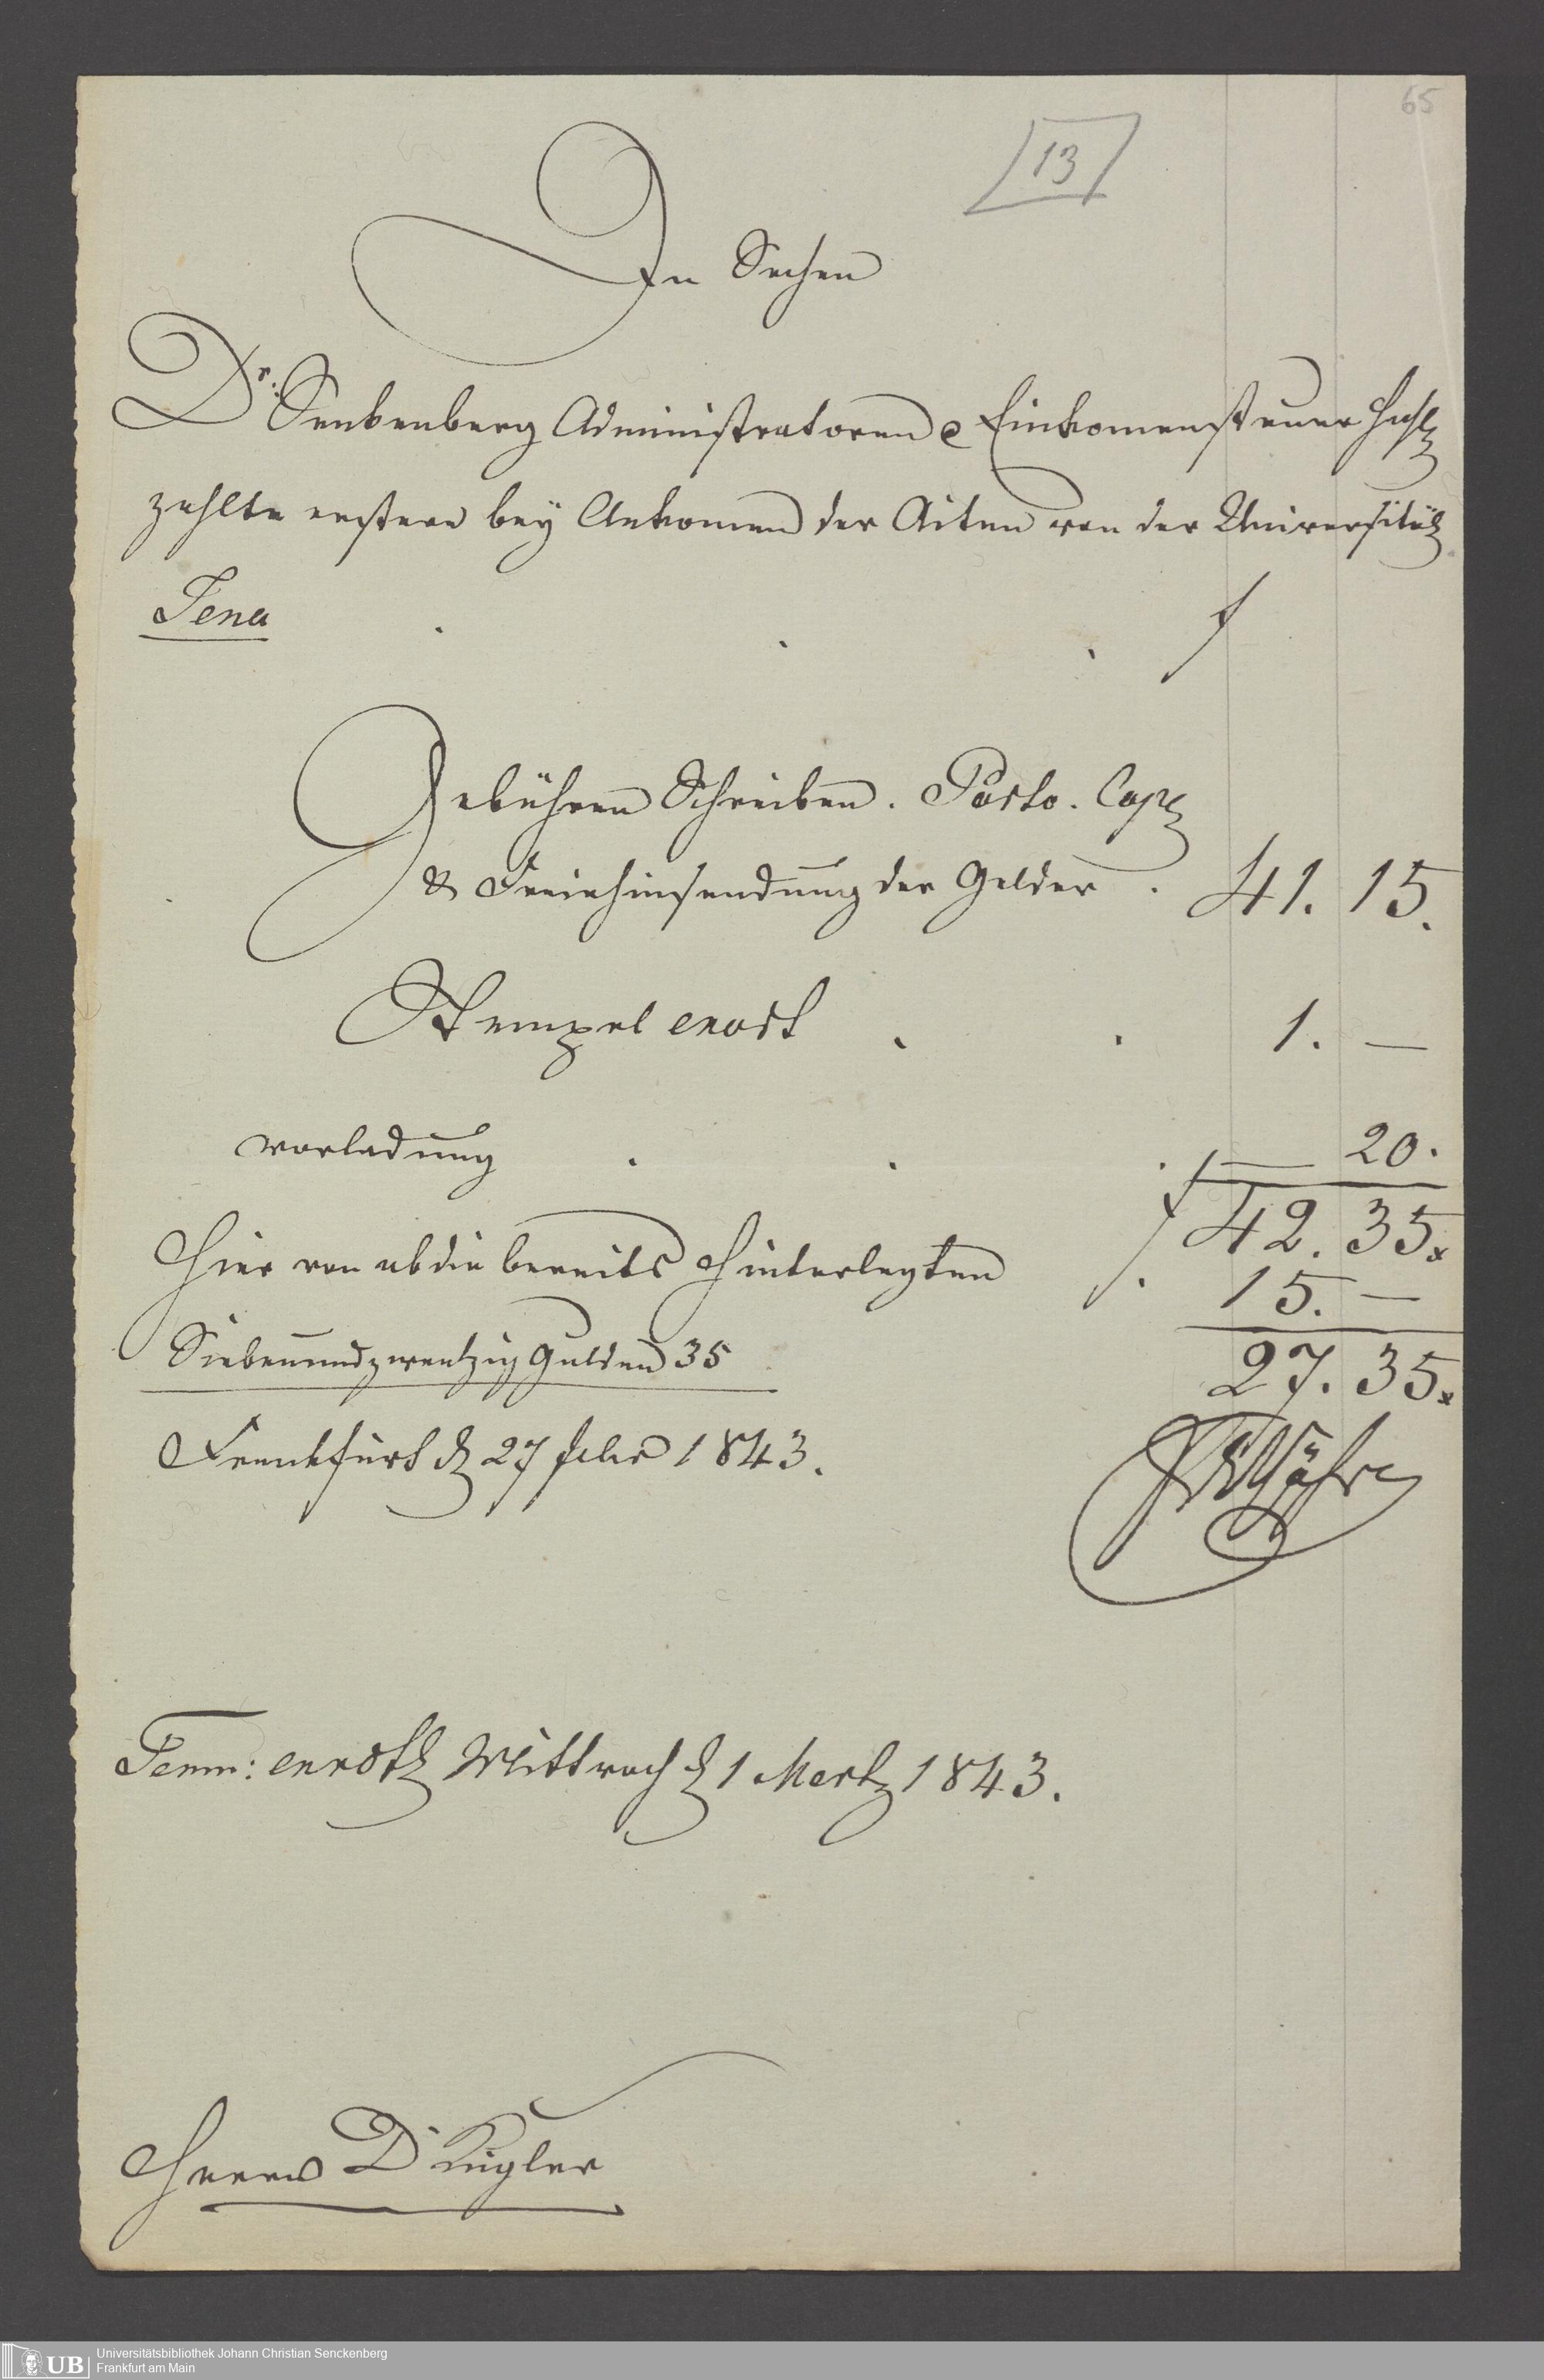 65
13
In Sachen
Dr. Senkenberg Administratoren c Einkomensteuer
zahlte erstere bey Ankomen der Acten von der Universität
Jena . . . f
Gebühren Schreiben. Porto. Cop
& Freiehinsendung der Gelder . 41. 15.
Stempel . . 1. —
Vorladung . . . — 20.
f 42. 35x
Hier von ab die bereits Hinterlegten . 15. —
Siebenundzwantzig Gulden 35 27. 35x
Franckfurt d 27 febr 1843.
Term: Mittwoch d 1 Mertz 1843.
Herrn Dr Kugler
UB Universitätsbibliothek Johann Christian Senckenberg
Frankfurt am Main